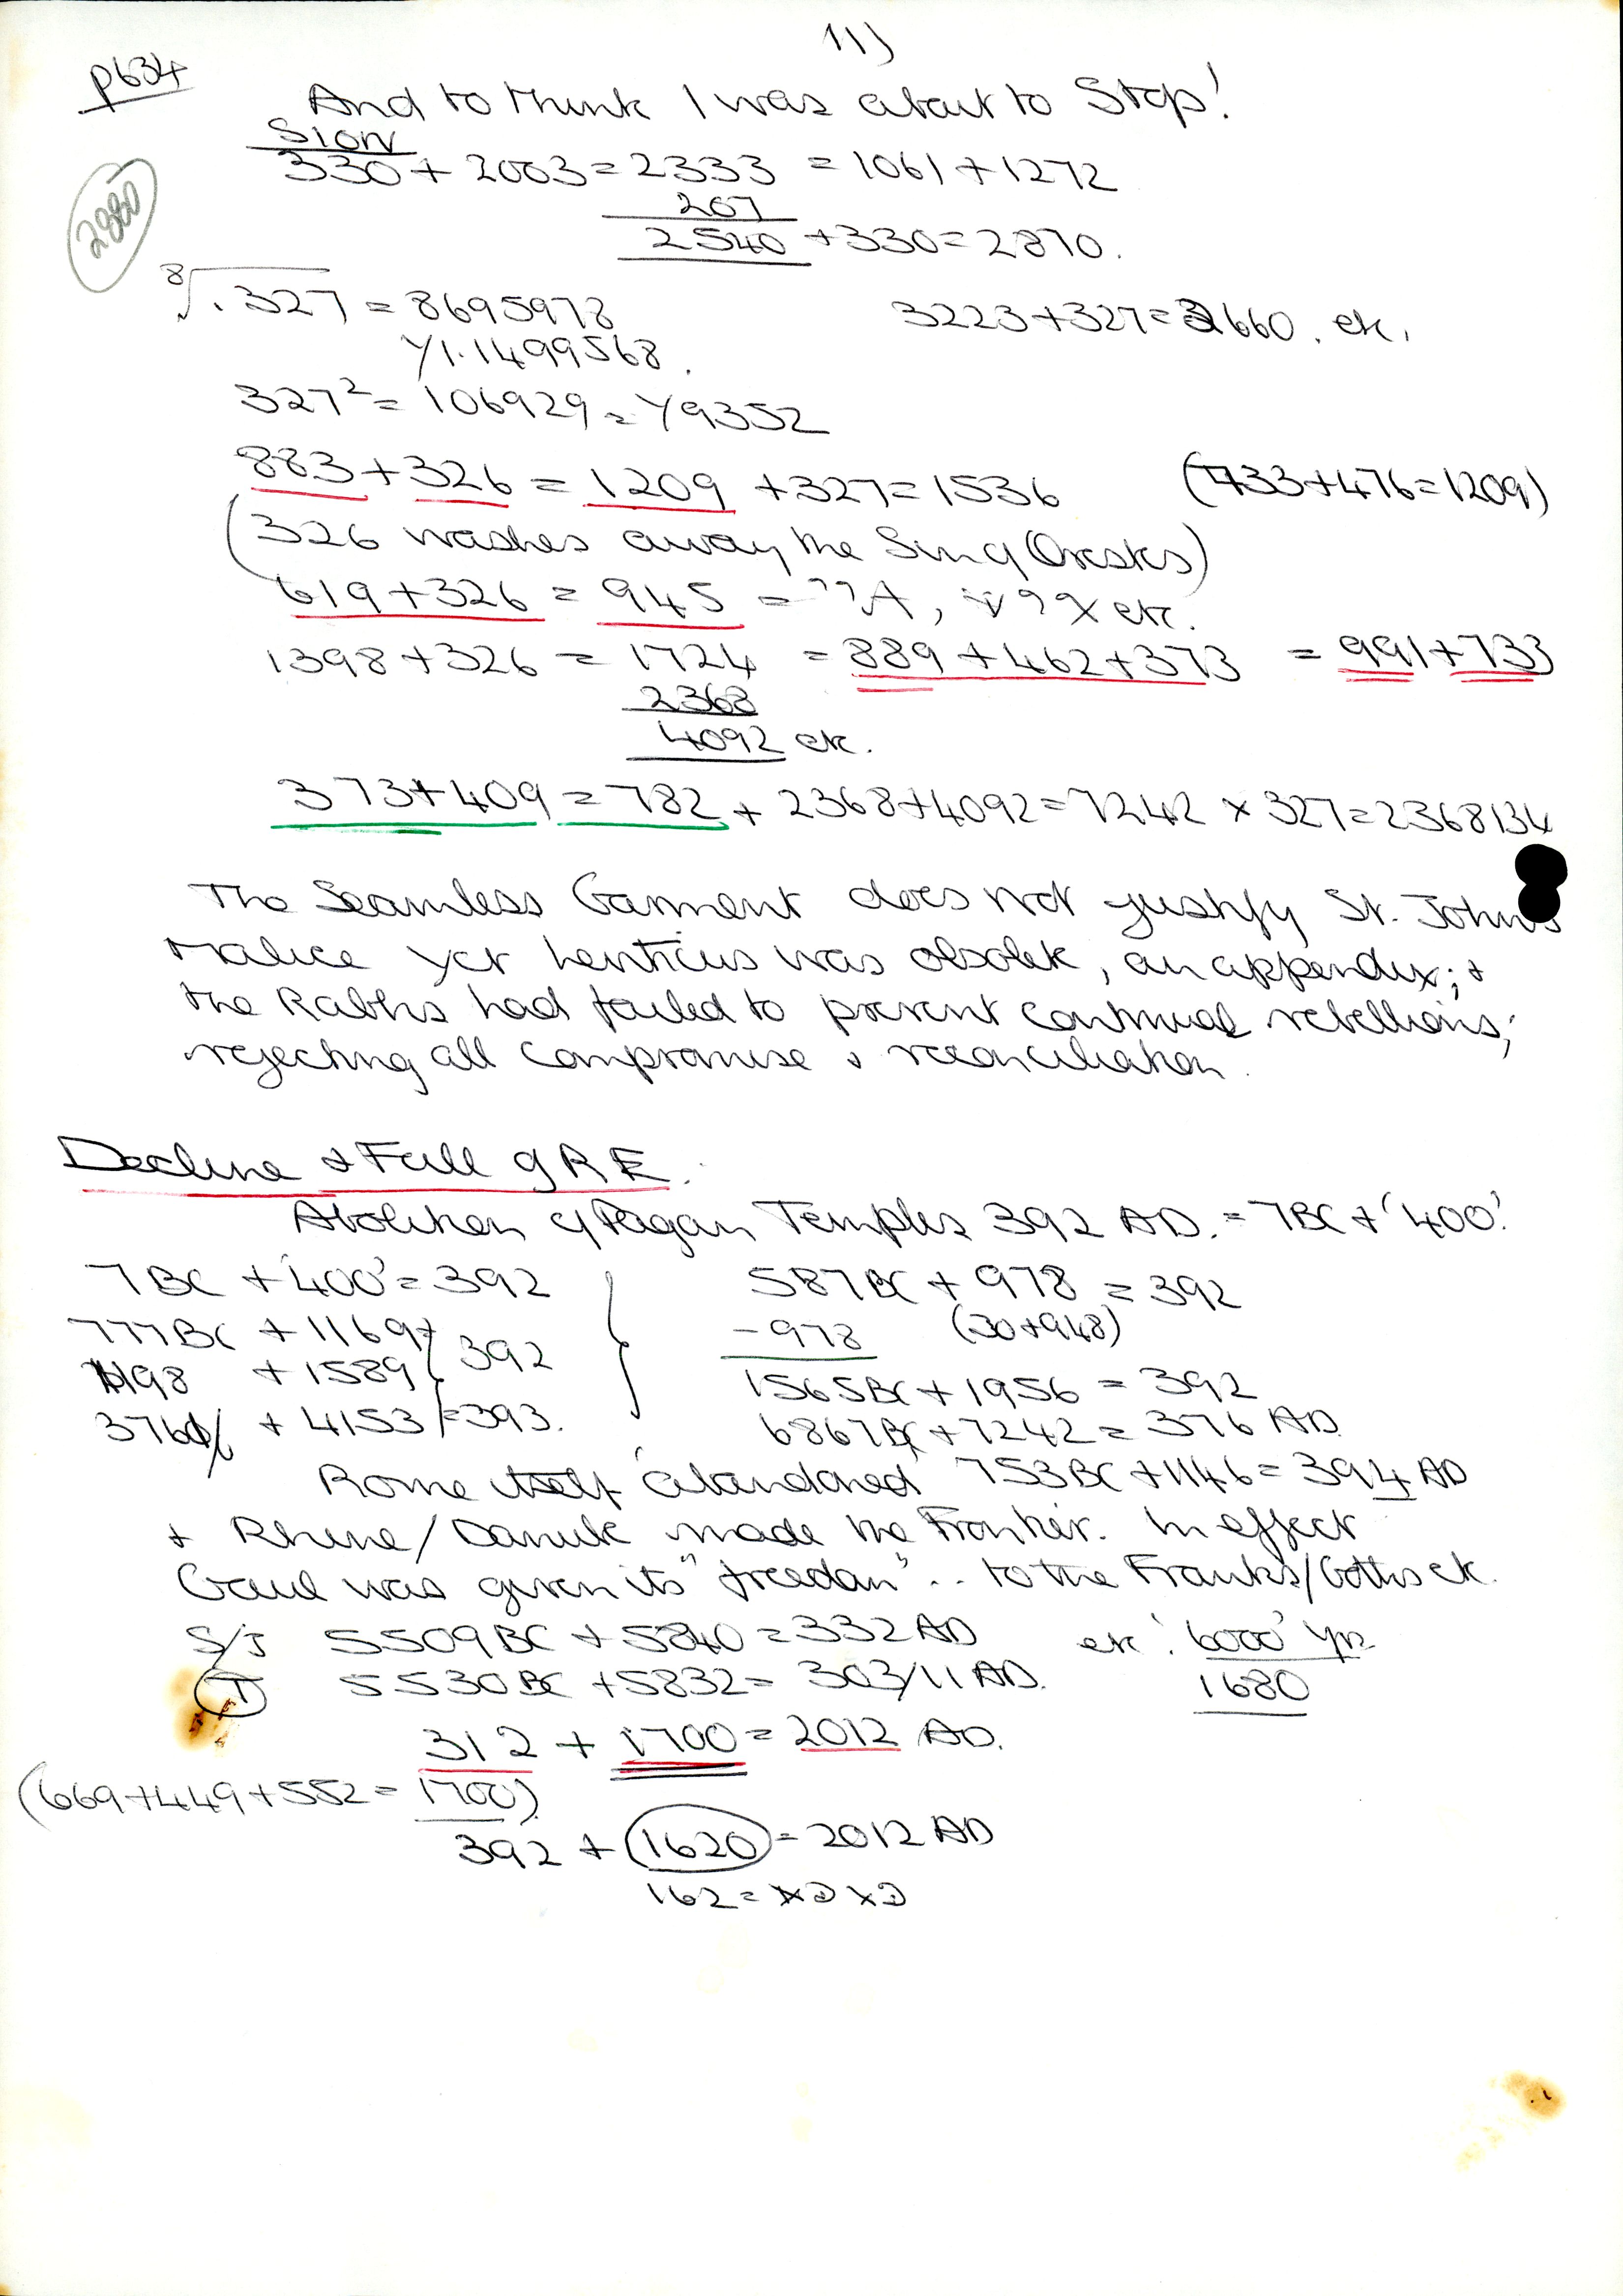 11)
p634
And to think I was about to Stop!
Sion
330 + 2003 = 2333 = 1061 + 1272
207
2540 + 330 = 2870.
2880
8√.327 = 8695978
Y1.1499568.
3223 + 327 = 3660. etc.
327² = 106929 = Y9352
883 + 326 = 1209 + 327 = 1536 (733 + 476 = 1209)
(326 washes away the Sin of Orestes)
619 + 326 = 945 = ??A, etc.
1398 + 326 = 1724 = 889 + 462 + 373 = 991 + 733
2368
4092 etc.
373 + 409 = 782 + 2368 + 4092 = 7242 x 327 = 2368134
The Seamless Garment does not justify St. John's
Malice yet Leviticus was obsolete, an appendix; +
the Rabbis had failed to prevent continual rebellions;
rejecting all compromise + reconciliation.
Decline + Fall of RE.
Abolition of Pagan Temples 392 AD. = 7BC + '400'.
7 BC + '400' = 392
777BC + 1169
1198 + 1589 } 392
3760/1 + 4153 = 393.
587BC + 978 = 392
-978 (30+948)
1565BC + 1956 = 392
6867BC + 7242 = 376 AD
Rome itself 'abandoned' 753BC + 1146 = 394 AD
+ Rhine/Danube made the Frontier. In effect
Gaul was given its "freedom".. to the Franks/Goths etc.
S/J 5509BC + 5840 = 332 AD etc. '6000' yrs
T 5530BC + 5832 = 303/11 AD. 1680
312 + 1700 = 2012 AD.
(669+449+582 = 1700)
392 + 1620 = 2012 AD
162 =